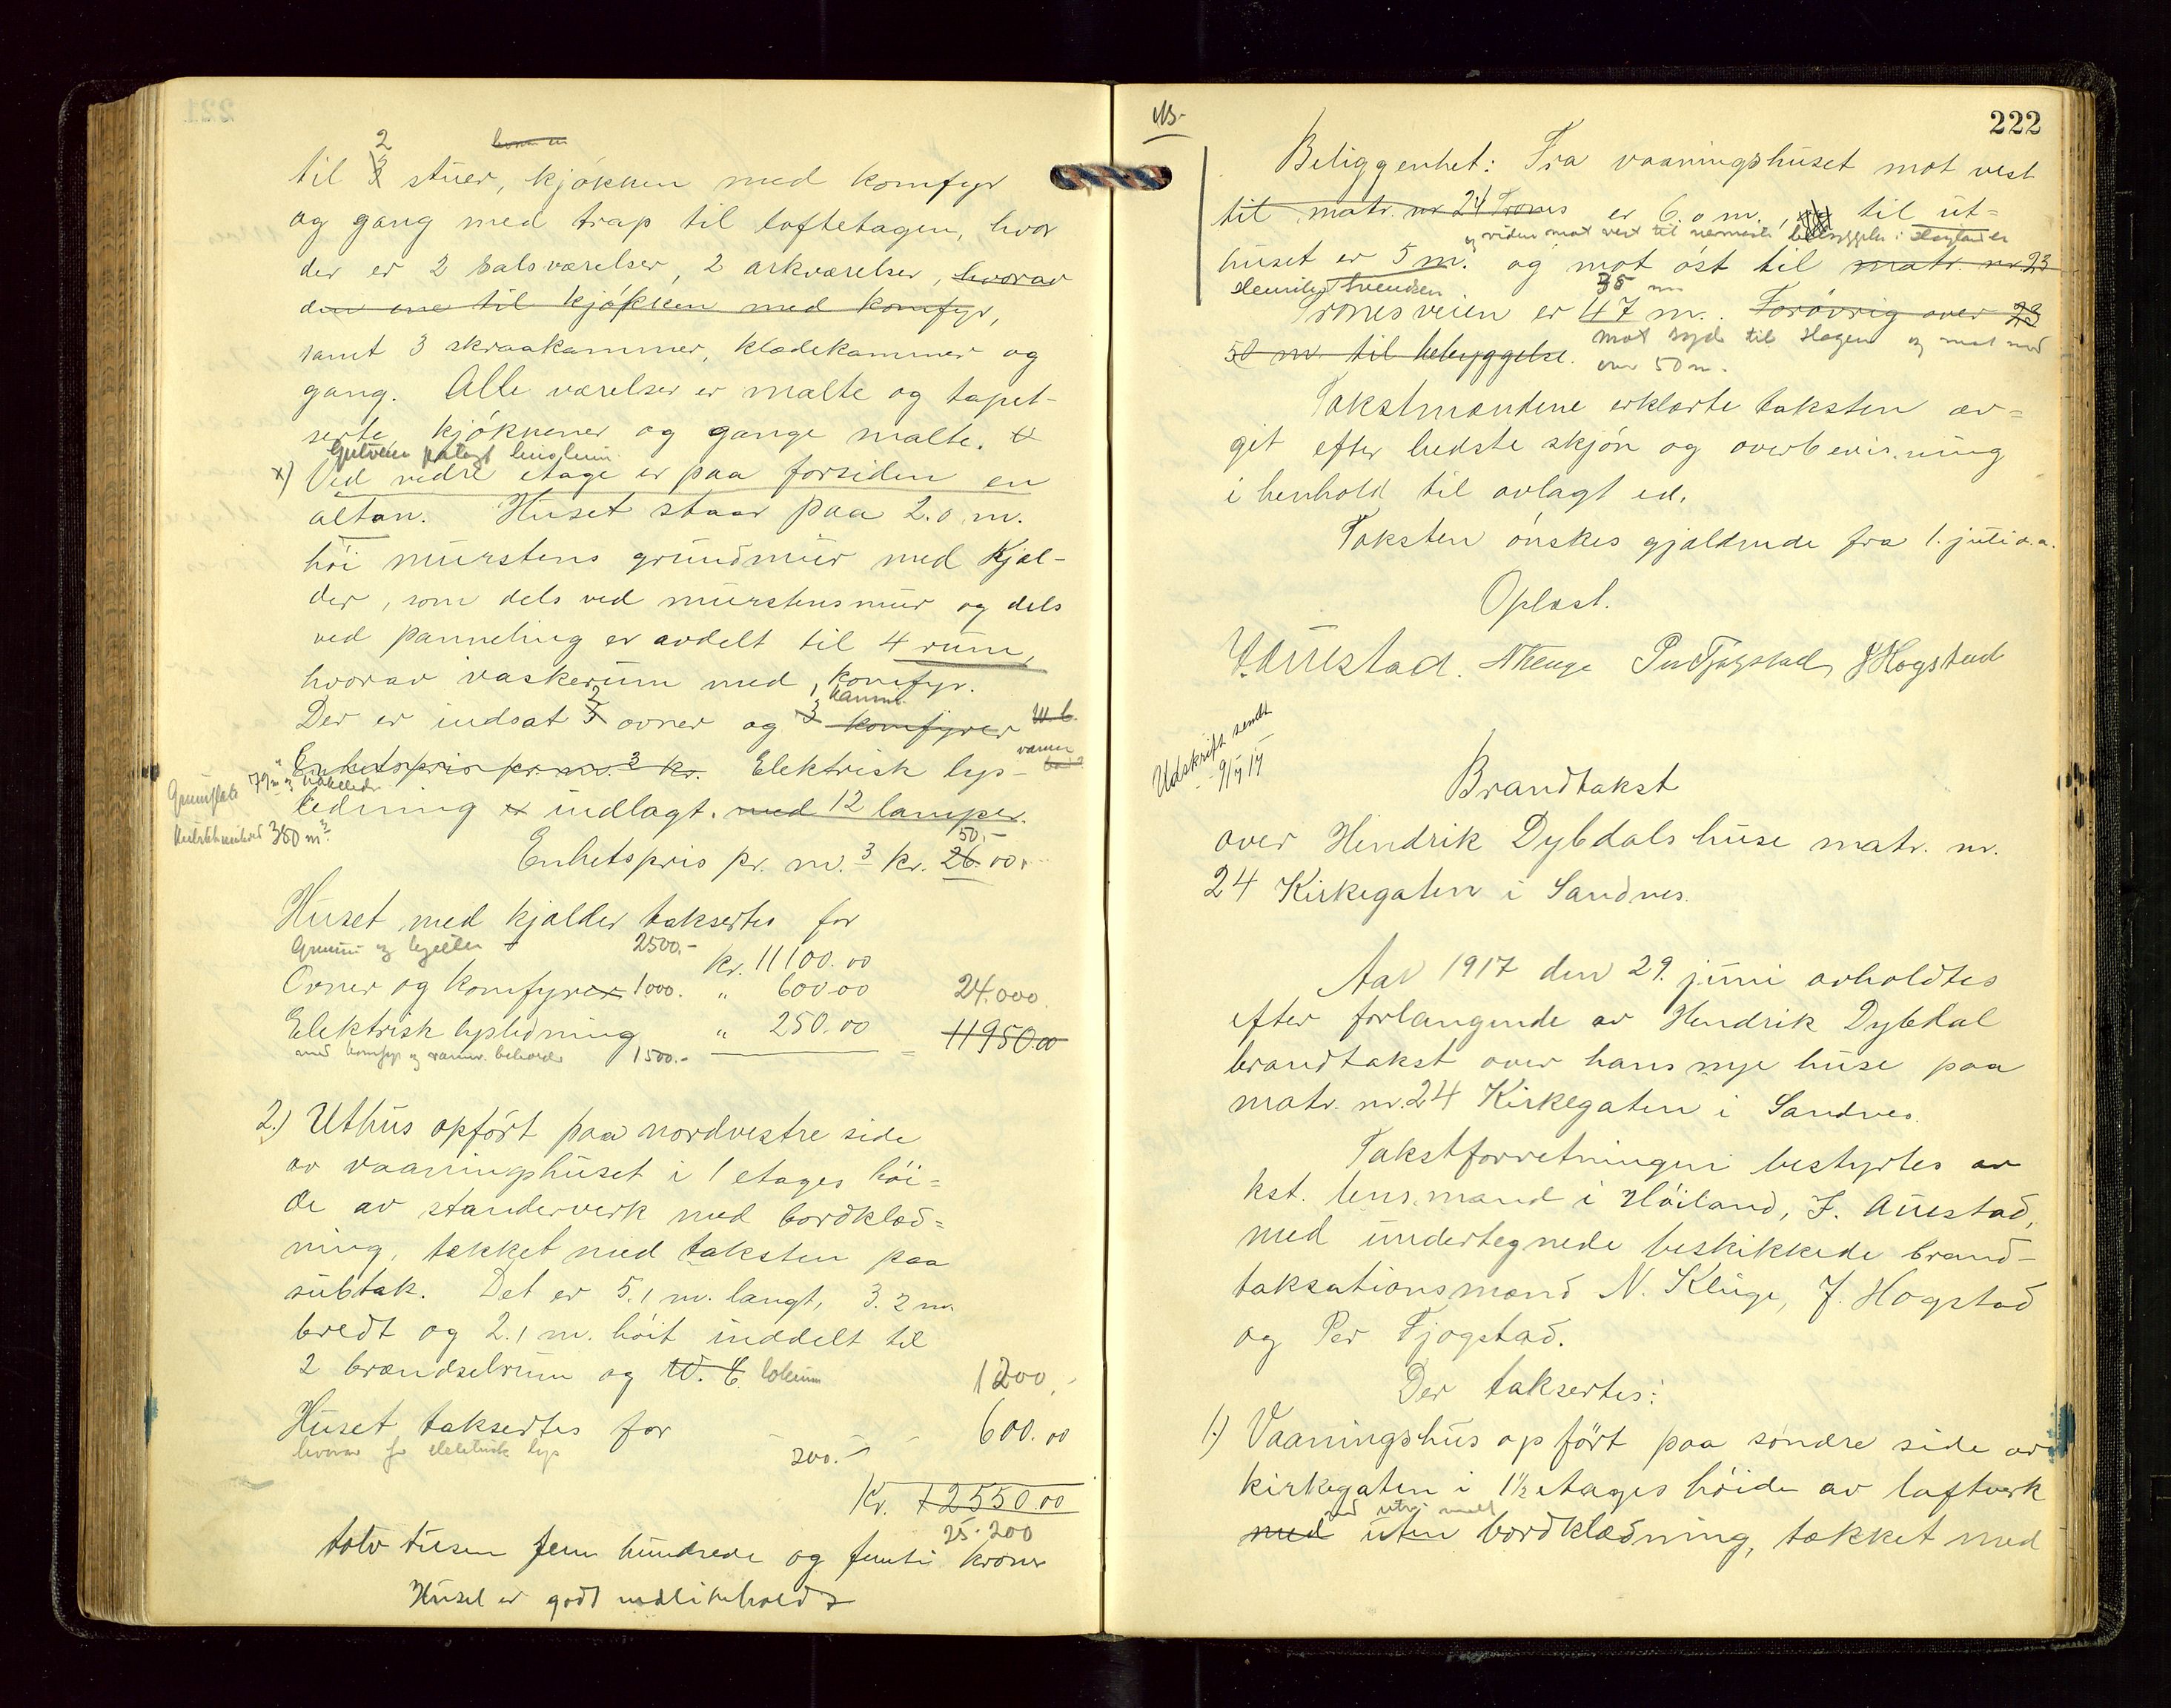 2
til 3 stuer, kjøkken med komfyr
og gang med trap til loftetagen, hvor
der er 2 salsværelser, 2 arkværelser, hvorav
den ene til kjøkken med komfyr,
samt 3 skraakammer, klædekammer og
gang. Alle værelser er malte og tapet-
serte, kjøkkener og gange malte.
x) Ved nedre etage er paa forsiden en
altan. Huset staar paa 2.0 m.
høi murstens grundmur med Kjæl-
der, som dels ved murstensmur og dels
ved panneling er avdelt til 4 rum,
hvorav vaskerum med komfyr.
Der er indsat 5 ovner og 3 komfyrer W.C.
Enhetspris pr. m.3 kr. Elektrisk lys-
ledning er indlagt. med 12 lamper.
380 m3
50,-
Enhetspris pr. m.3 kr. 26.00.
Huset med kjælder taksertes for
2500.- kr. 11100.00
Ovner og komfyrer 1000. " 600.00 24.000.
Elektrisk lysledning " 250.00 = 11950.00
1500.-
2.) Uthus opført paa nordvestre side
av vaaningshuset i 1 etages høi=
de av standerverk med bordklæd=
ning, tækket med taksten paa
subtak. Det er 5.1 m. langt, 3.2 m.
bredt og 2.1 m. høit inddelt til
2 brændselrum og W.C.
1200.-
Huset taksertes for 600.00
hvorav for elektrisk lys 200.-
Kr. 12550.00
25.200
tolv tusen fem hundrede og femti kroner
Huset er godt vedlikeholdt
222
Beliggenhet: Fra vaaningshuset mot vest
til matr. nr 24 Trones er 6.0 m., til ut=
og viden mot vest til nærmeste bebyggelse
huset er 5 m. og mot øst til matr. nr. 23
35 m
Tronesveien er 47 m. Forøvrig over 23
mot syd til Hagen og mot nord
50 m. til bebyggelse. over 50 m.
Takstmændene erklærte taksten av=
git efter bedste skjøn og overbevisning
i henhold til avlagt ed.
Taksten ønskes gjældende fra 1. juli d.a.
Oplæst.
J. Auestad. N Kluge Per Fjogstad J Hogstad
Udskrift sendt
9/7 17
Brandtakst
over Hendrik Dybdals huse matr. nr.
24 Kirkegaten i Sandnes.
Aar 1917 den 29. juni avholdtes
efter forlangende av Hendrik Dybdal
brandtakst over hans nye huse paa
matr. nr. 24 Kirkegaten i Sandnes.
Takstforretningen bestyrtes av
kst. lensmand i Høiland, J. Auestad,
med undertegnede beskikkede brand-
taksationsmænd N. Kluge, J. Hogstad
og Per Fjogstad.
Der taksertes:
1.) Vaaningshus opført paa søndre side av
kirkegaten i 1½ etages høide av laftverk
med uten bordklædning, tækket med